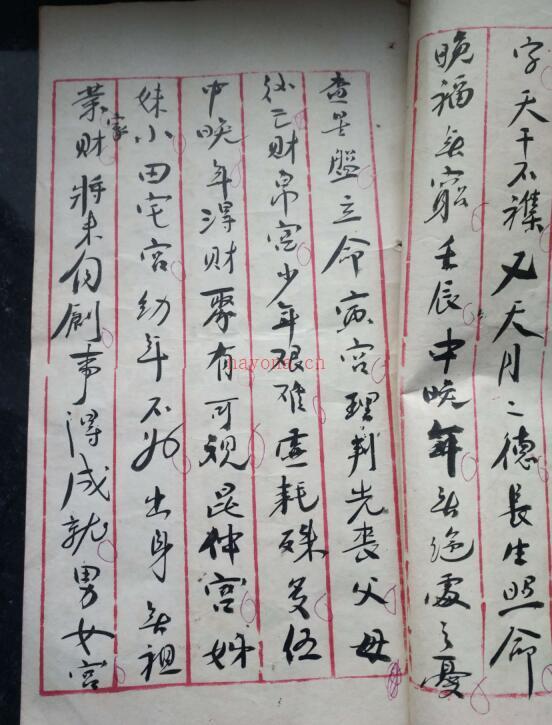 字天干不襍又天月二德長生照命
晚福無窮壬辰中晚年無絕處之憂
查星盤立命宮理判先喪父母
財帛宮少年艱难虛耗殊多伍
中晚年得財聚有可观昆仲宮姊
妹小田宅宮幼年不好出身無祖
業家財將來自創事得成就男女宮
nayona.cn